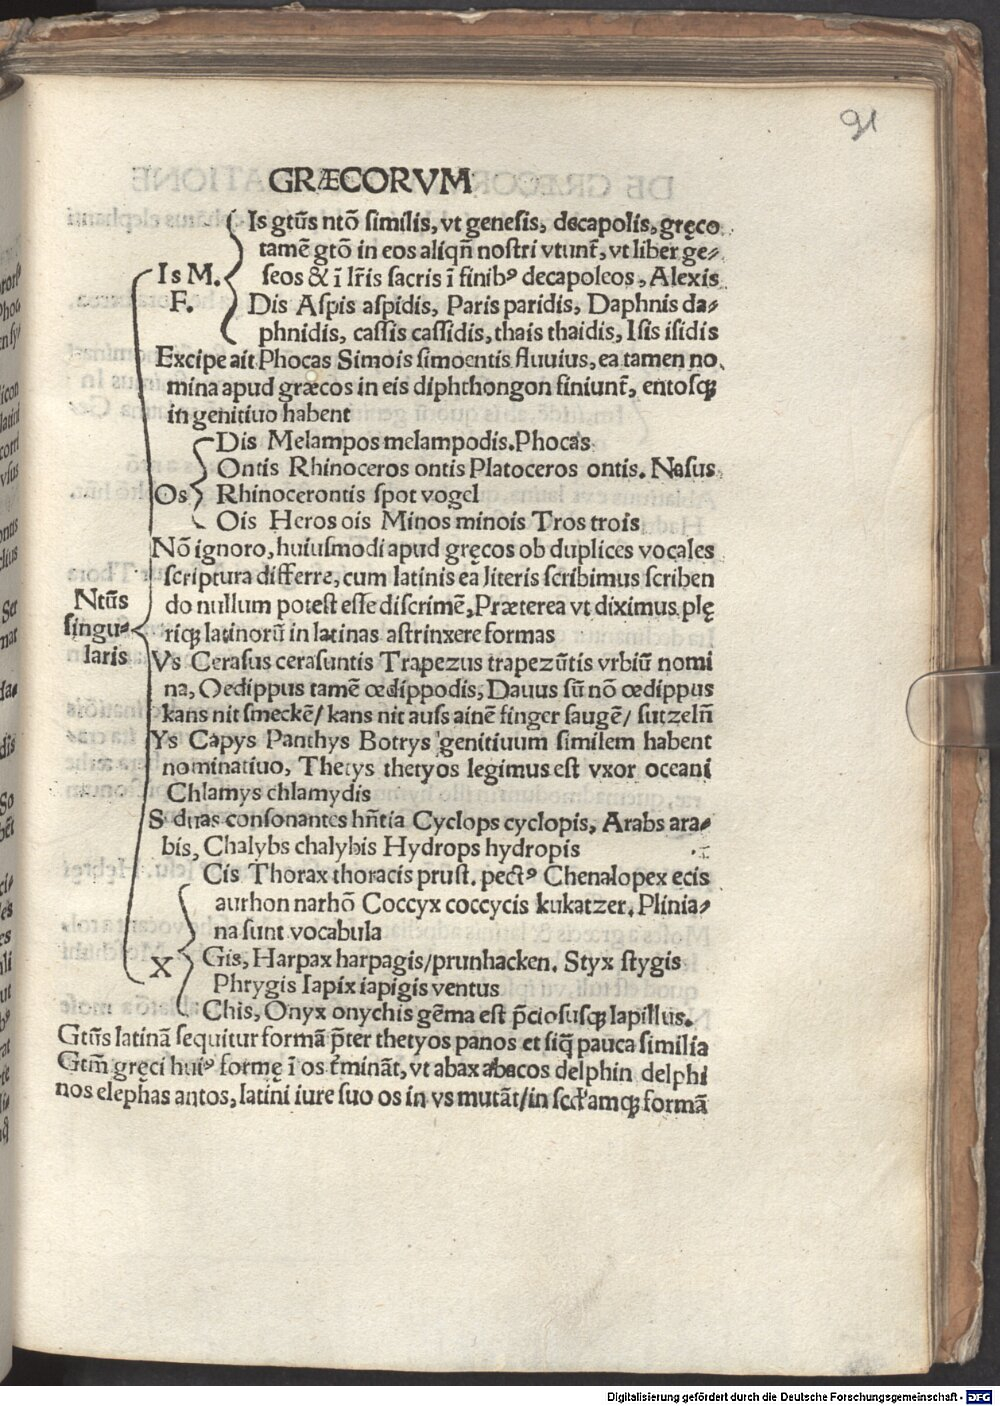 91
GRÆCORVM
Is gtũs ntõ similis, vt genesis, decapolis, gręco
tamẽ gtõ in eos aliqñ nostri vtunt᷑, vt liber ge⸗
Is M.
seos & ĩ lr̃is sacris ĩ finibꝰ decapoleos, Alexis
F.
Dis Aspis aspidis, Paris paridis, Daphnis da⸗
phnidis, cassis cassidis, thais thaidis, Isis isidis
Excipe ait Phocas Simois simoentis fluuius, ea tamen no
mina apud græcos in eis diphthongon finiunt᷑, entosqꝫ
in genitiuo habent
Dis Melampos melampodis. Phocas
Ontis Rhinoceros ontis Platoceros ontis. Nasus
Os Rhinocerontis spot vogel
Ois Heros ois Minos minois Tros trois
Nõ ignoro, huiusmodi apud gręcos ob duplices vocales
scriptura differre, cum latinis eã literis scribimus scriben
Ntũs
do nullum potest esse discrimẽ, Præterea vt diximus plę
singu⸗
riqꝫ latinorũ in latinas astrinxere formas
laris
Vs Cerasus cerasuntis Trapezus trapezũtis vrbiũ nomi
na, Oedippus tamẽ œdippodis, Dauus sũ nõ œdippus
kans nit smeckẽ/ kans nit auss ainẽ finger saugẽ/ sutzelñ
Ys Capys Panthys Botrys genitiuum similem habent
nominatiuo, Thetys thetyos legimus est vxor oceani
Chlamys chlamydis
S duas consonantes hñtia Cyclops cyclopis, Arabs ara⸗
bis, Chalybs chalybis Hydrops hydropis
Cis Thorax thoracis prust. pectꝰ Chenalopex ecis
aurhon narhõ Coccyx coccycis kukatzer. Plinia⸗
na sunt vocabula
X Gis, Harpax harpagis/prunhacken. Styx stygis
Phrygis Iapix iapigis ventus
Chis, Onyx onychis gẽma est p̃ciosusqꝫ lapillus.
Gtũs latinã sequitur formã p̃ter thetyos panos et siq̃ pauca similia
Gtm̃ gręci huiꝰ formę ĩ os t᷑minãt, vt abax abacos delphin delphi
nos elephas antos, latini iure suo os in vs mutãt/in scd'amqꝫ formã
Digitalisierung gefördert durch die Deutsche Forschungsgemeinschaft - DFG